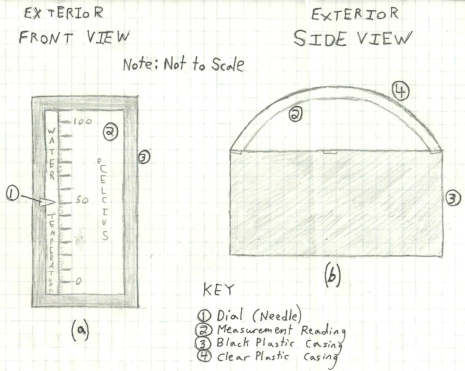 EXTERIOR
FRONT VIEW
EXTERIOR
SIDE VIEW
Note: Not to Scale
WATER TEMPERATURE
100
50
0
°CELCIUS
1
2
3
(a)
4
2
3
(b)
KEY
1 Dial (Needle)
2 Measurement Reading
3 Black Plastic Casing
4 Clear Plastic Casing